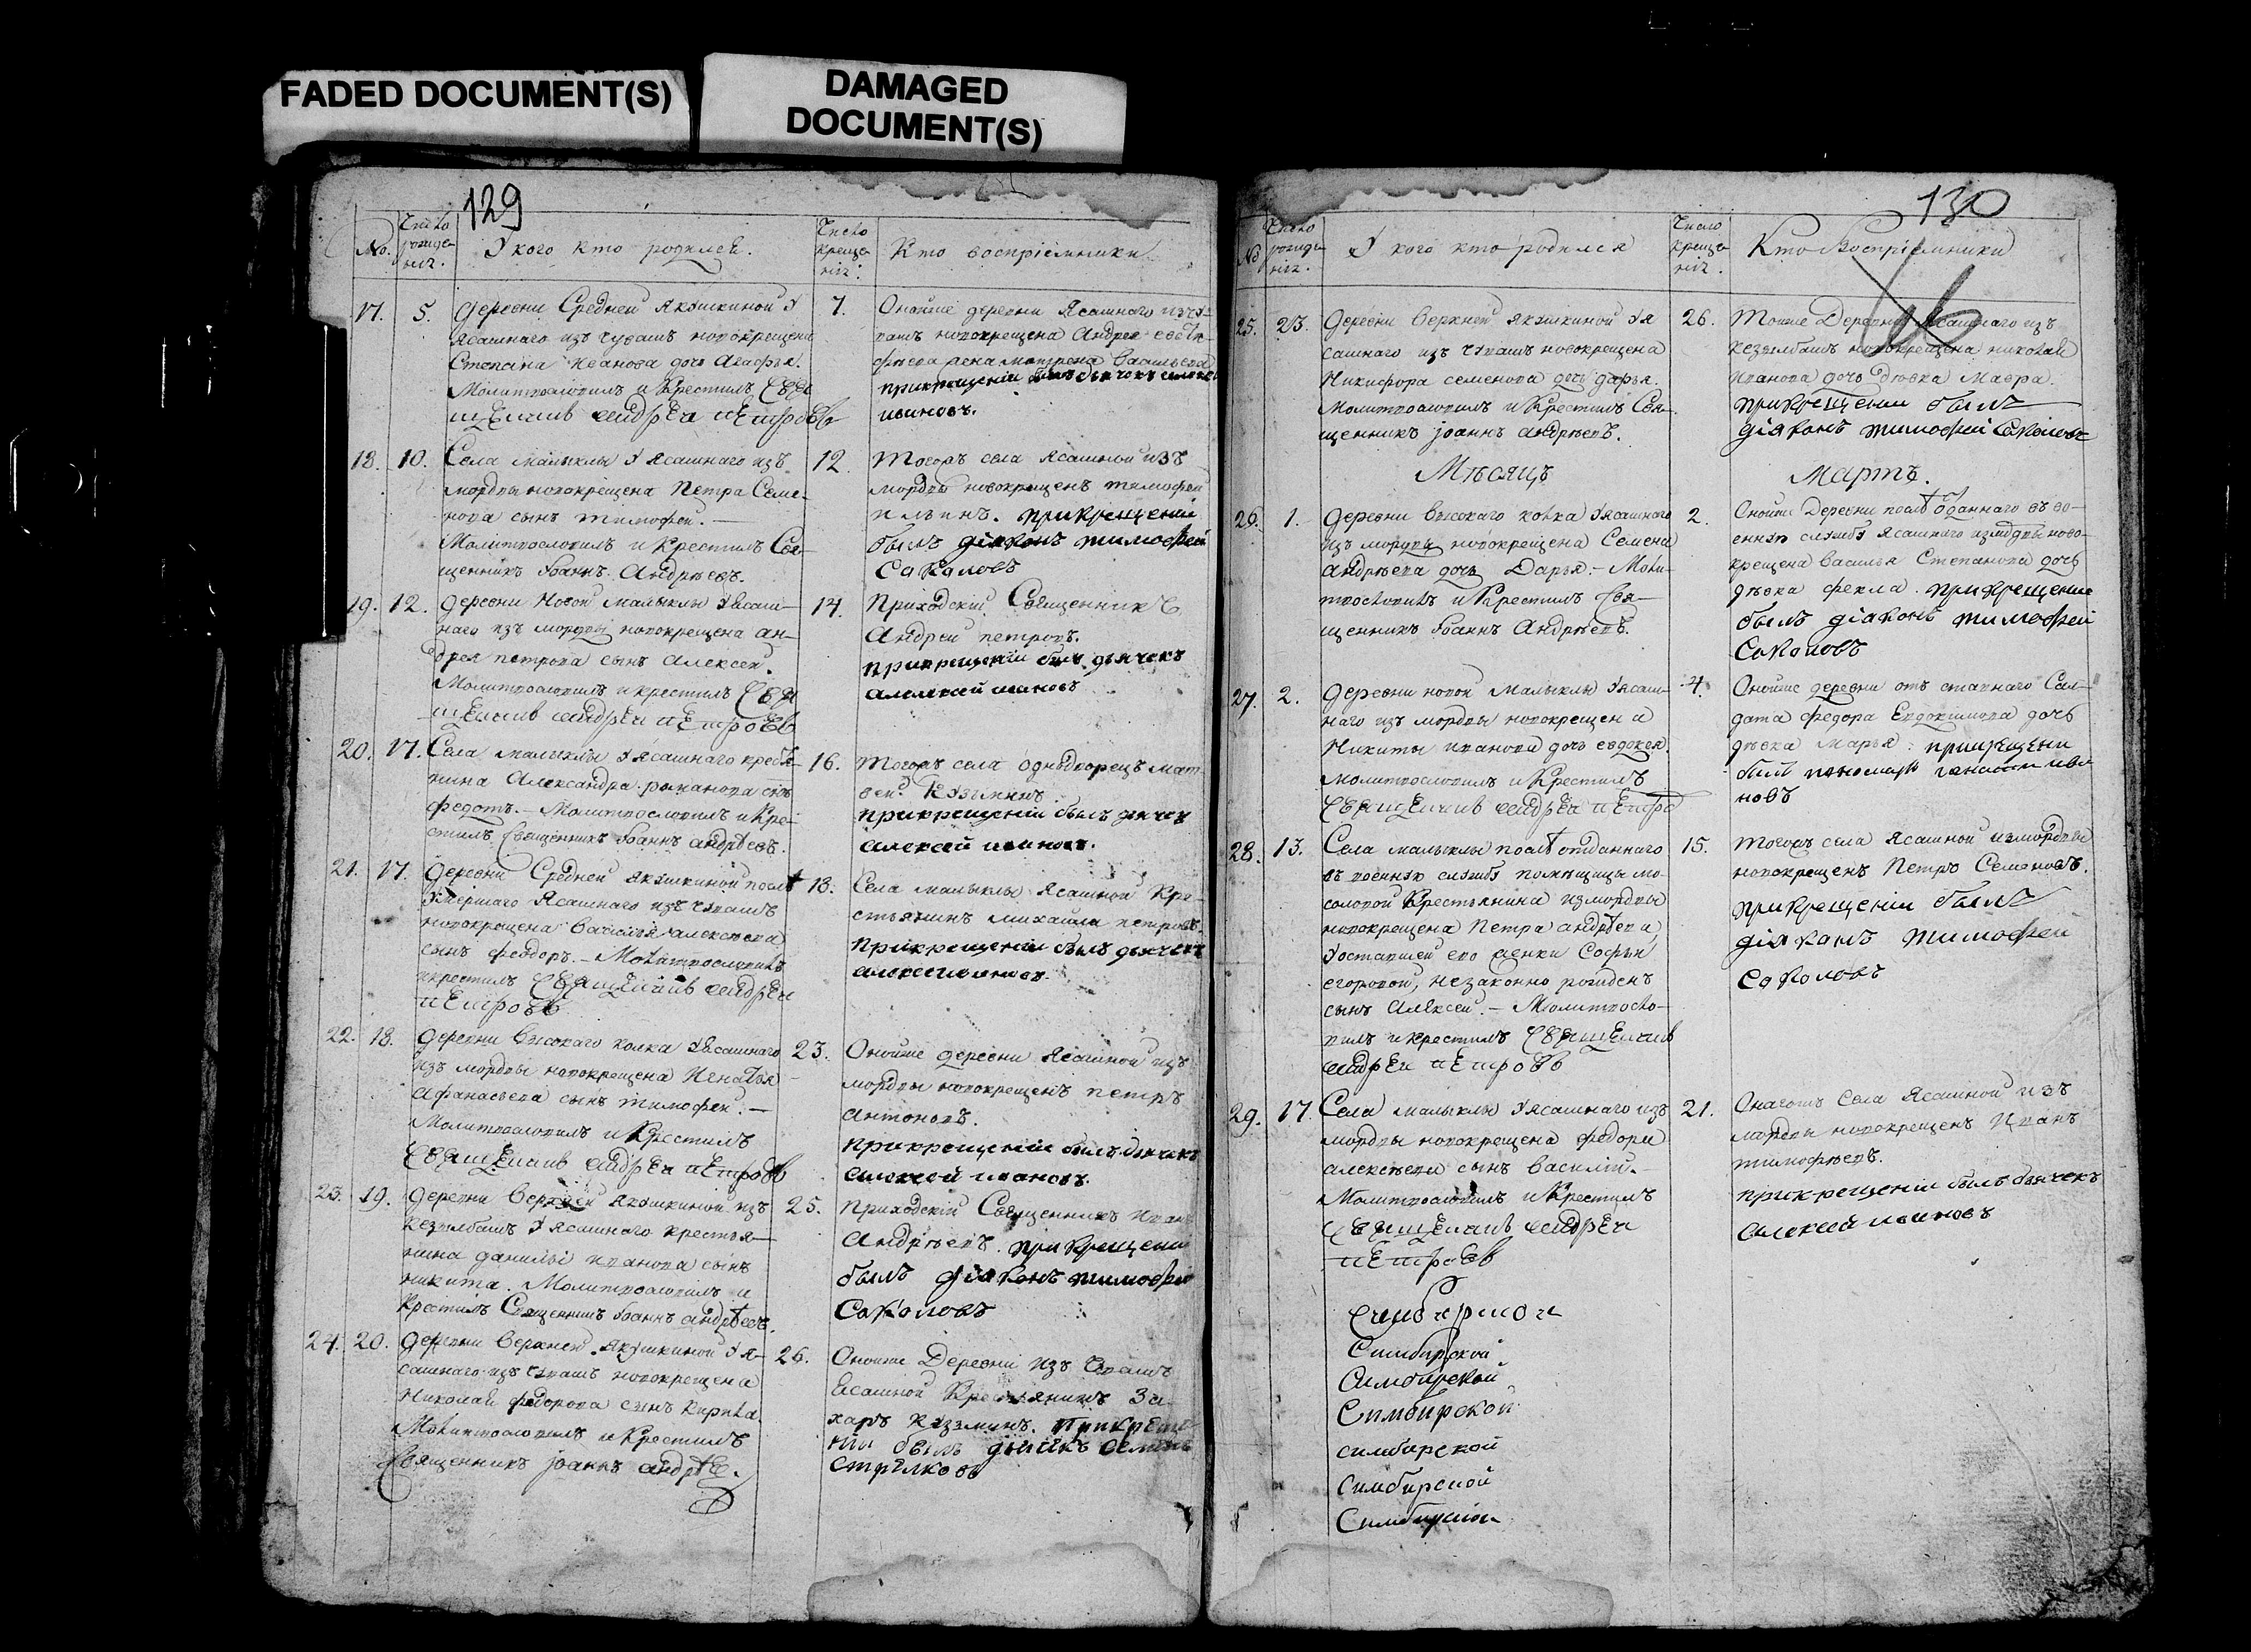 FADED DOCUMENT(S)
DAMAGED
DOCUMENT(S)
129
No.
Число рожде-
нія.
У кого кто родился.
Число креще-
нія.
Кто воспріемники
17.
5.
деревни Средней Якушкиной у
ясашнаго изъ чувашъ новокрещена
Степана Иванова дочь Агафья.
Молитвословилъ и Крестилъ Свя
щенникъ Андреи Петровъ
7.
Оной же деревни Ясашнаго изъ чу-
вашъ новокрещена Андрея
жена Матрена Васильева
при крещеніи былъ дьячокъ Алексей
Ивановъ.
18.
10.
Села Малыклы у Ясашнаго изъ
мордвы новокрещена Петра Семе-
нова сынъ Тимофей.
Молитвословилъ и Крестилъ Свя-
щенникъ Іоаннъ Андрѣевъ.
12.
Тогожъ села Ясашной изъ
мордвы новокрещенъ Тимофей
Ильинъ. при крещеніи
былъ діяконъ Тимофей
Соколовъ
19.
12.
деревни Новой Малыклы у Ясаш-
наго изъ мордвы новокрещена Ан-
дрея Петрова сынъ Алексей.
Молитвословилъ и крестилъ Свя
щенникъ Андреи Петровъ
14.
Приходскій Священникъ
Андрей Петровъ.
при крещеніи былъ дьячекъ
Алексей Ивановъ
20.
17.
Села Малыклы у Ясашнаго крестья-
нина Александра Романова сынъ
Федотъ. – Молитвословилъ и Кре-
стилъ Священникъ Іоаннъ Андрѣевъ.
16.
Тогожъ села однодворецъ Мат-
вей Кузминъ.
при крещеніи былъ дьячек
Алексей Ивановъ.
21.
17.
деревни Средней Якушкиной послѣ
умершаго Ясашнаго изъ чувашъ
новокрещена Василья Алексѣева
сынъ Феодоръ. – Молитвословилъ
и крестилъ Священникъ Андреи
Петровъ
18.
Села Малыклы Ясашной Кре-
стьянинъ Михайла Петровъ.
при крещеніи былъ дьячекъ
Алексей Ивановъ.
22.
18.
деревни Высокаго колка у Ясашнаго
изъ мордвы новокрещена Игнатья
Афанасьева сынъ Тимофей. –
Молитвословилъ и Крестилъ
Священникъ Андреи Петровъ
23.
Оной же деревни Ясашной изъ
мордвы новокрещенъ Петръ
Антоновъ.
при крещеніи былъ дьячекъ
Алексей Ивановъ.
23.
19.
деревни Верхней Якушкиной изъ
кезылбашъ у Ясашнаго крестья-
нина Данилы Иванова сынъ
Никита. Молитвословилъ и
Крестилъ Священникъ Іоаннъ Андрѣевъ.
25.
Приходскій Священникъ Иванъ
Андрѣевъ. при крещеніи
былъ діяконъ Тимофей
Соколовъ
24.
20.
деревни Верхней Якушкиной у Я-
сашнаго изъ чувашъ новокрещена
Николая Федорова сынъ Кирила.
Молитвословилъ и Крестилъ
Священникъ Іоаннъ Андрѣевъ.
26.
Оной же Деревни изъ Чувашъ
Ясашной Крестьянинъ За-
харъ Кузминъ. При креще
ніи былъ дьячекъ
Стрѣлковъ
130
16
No
Число рожде-
нія.
У кого кто родился
Число креще-
нія.
Кто Воспріемники
25.
23.
Деревни Верхней Якушкиной у Я
сашнаго изъ Чувашъ новокрещена
Никифора Семенова дочь Дарья.
Молитвословилъ и Крестилъ Свя-
щенникъ Іоаннъ Андрѣевъ.
26.
Той же Деревни Ясашнаго изъ
кезылбашъ новокрещена Николая
Иванова дочь дѣвка Мавра.
при крещеніи былъ
діяконъ Тимофей Соколовъ
Мѣсяцъ
Мартъ.
26.
1.
деревни Высокаго колка у Ясашнаго
изъ мордвы новокрещена Семена
Андрѣева дочь Дарья. – Моли-
твословилъ и Крестилъ Свя-
щенникъ Іоаннъ Андрѣевъ.
2.
Оной же Деревни послѣ отданнаго въ во-
енную службу Ясашнаго изъ мордвы ново-
крещена Василья Степанова дочь
дѣвка Фекла. при крещеніи
былъ діяконъ Тимофей
Соколовъ
27.
2.
деревни новой Малыклы у Ясаш-
наго изъ мордвы новокрещена
Никиты Иванова дочь Евдокея.
Молитвословилъ и Крестилъ
Священникъ Андреи Петро
4.
Оной же деревни отъ ставнаго Сал-
дата Федора Евдокимова дочь
дѣвка Марья. при крещени
былъ пономарь Ива
новъ
28.
13.
Села Малыклы послѣ отданнаго
въ военную службу помѣщицы Мо-
соловой Крестьянина изъ мордвы
новокрещена Петра Андрѣева
у оставшей его женки Софьи
Егоровой, незаконно рожденъ
сынъ Алексей. – Молитвосло-
вилъ и крестилъ Священникъ
Андреи Петровъ
15.
Тогожъ села Ясашной изъ мордвы
новокрещенъ Петръ Семеновъ.
при крещеніи былъ
діяконъ Тимофеи
Соколовъ
29.
17.
Села Малыклы у Ясашнаго изъ
мордвы новокрещена Федора
Алексѣева сынъ Василій.
Молитвословилъ и Крестилъ
Священникъ Андреи
Петровъ
21.
Онагожъ Села Ясашной изъ
мордвы новокрещенъ Иванъ
Тимофѣевъ.
при крещеніи былъ дьячекъ
Алексей Ивановъ
Симбирской
Симбирской
Симбирской
симбирской
Симбирской
Симбирской